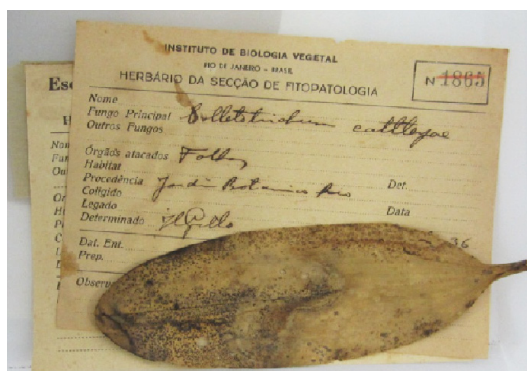 INSTITUTO DE BIOLOGIA VEGETAL
RIO DE JANEIRO - BRASIL
HERBÁRIO DA SECÇÃO DE FITOPATOLOGIA
N 1865
Es
Nome
Fungo Principal Colletotrichum cattleyae
Outros Fungos
Órgãos atacados Folhas
Habitat
Procedência Jardim Botanico Rio Det.
Coligido
Legado Data
Determinado
Dat. Ent. 36
Prep.
Observ